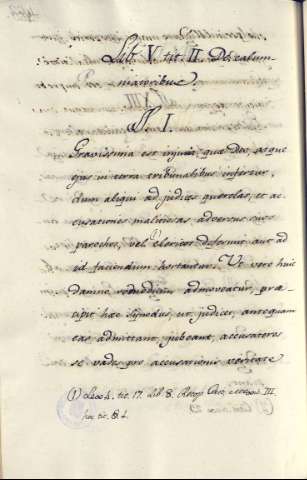 Lib. V. tit. II. De calum-
niatoribus.
§. I.
Gravissima est injuria, quæ Deo, atque
ejus in terra tribunalibus infertur,
dum aliqui ad judices querelas, et ac-
cusationes malitiosas adversus suos
parochos, vel (1) clericos deferunt aut ad
id faciendum hortantur. Ut vero huic
damno remedium admoveatur, præ-
cipit hæc Synodus, ut judices, antequam
eas admittant, jubeant, accusatores
se vades pro accusationis veritate
(1) Leo 4. tit. 17. Lib. 8. Recop.
III.
tit. 8. 1.